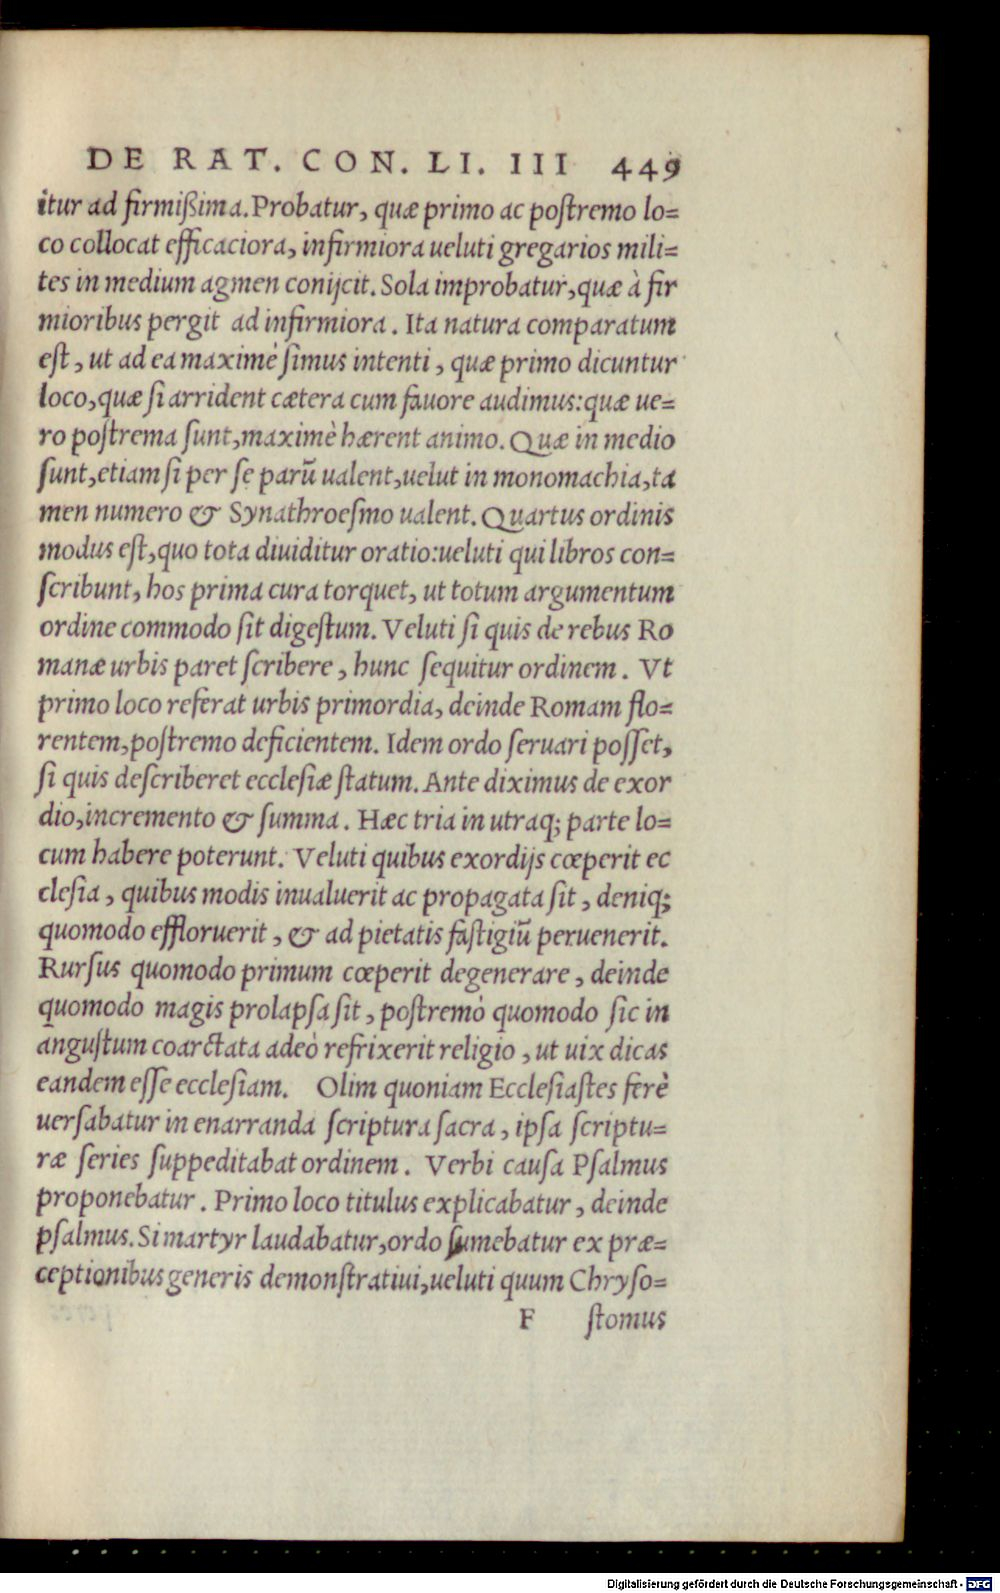 DE RAT. CON. LI. III 449
itur ad firmißima. Probatur, quæ primo ac poſtremo lo=
co collocat efficaciora, infirmiora ueluti gregarios mili=
tes in medium agmen conijcit. Sola improbatur, quæ à fir
mioribus pergit ad infirmiora. Ita natura comparatum
eſt, ut ad ea maximè ſimus intenti, quæ primo dicuntur
loco, quæ ſi arrident cætera cum fauore audimus: quæ ue=
ro poſtrema ſunt, maximè hærent animo. Quæ in medio
ſunt, etiam ſi per ſe parũ ualent, uelut in monomachia, ta
men numero & Synathroeſmo ualent. Quartus ordinis
modus eſt, quo tota diuiditur oratio: ueluti qui libros con=
ſcribunt, hos prima cura torquet, ut totum argumentum
ordine commodo ſit digeſtum. Veluti ſi quis de rebus Ro
manæ urbis paret ſcribere, hunc ſequitur ordinem. Vt
primo loco referat urbis primordia, deinde Romam flo=
rentem, poſtremo deficientem. Idem ordo ſeruari poſſet,
ſi quis deſcriberet eccleſiæ ſtatum. Ante diximus de exor
dio, incremento & ſumma. Hæc tria in utraq; parte lo=
cum habere poterunt. Veluti quibus exordijs cœperit ec
cleſia, quibus modis inualuerit ac propagata ſit, deniq;
quomodo effloruerit, & ad pietatis faſtigiũ peruenerit.
Rurſus quomodo primum cœperit degenerare, deinde
quomodo magis prolapſa ſit, poſtremò quomodo ſic in
anguſtum coarctata adeò refrixerit religio, ut uix dicas
eandem eſſe eccleſiam. Olim quoniam Eccleſiaſtes ferè
uerſabatur in enarranda ſcriptura ſacra, ipſa ſcriptu=
ræ ſeries ſuppeditabat ordinem. Verbi cauſa Pſalmus
proponebatur. Primo loco titulus explicabatur, deinde
pſalmus. Si martyr laudabatur, ordo ſumebatur ex præ=
ceptionibus generis demonſtratiui, ueluti quum Chryſo=
F ſtomus
Digitalisierung gefördert durch die Deutsche Forschungsgemeinschaft - DFG